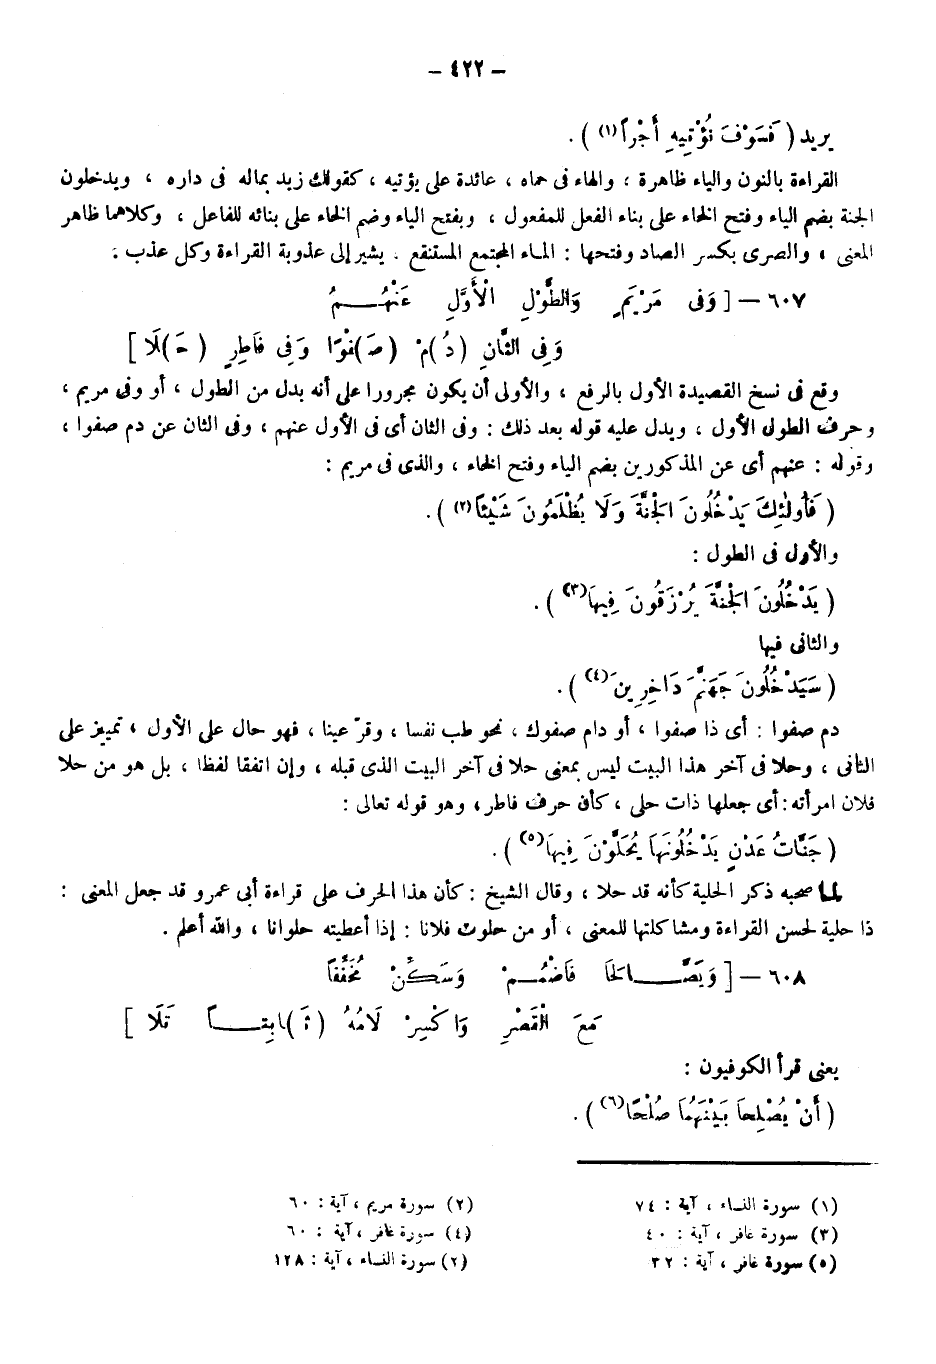 – ٤٢٢ –
يريد ( فَسَوْفَ نُؤْتِيهِ أَجْراً(١) ) .
القراءة بالنون والياء ظاهرة ، والهاء فى حماه ، عائدة على يؤتيه ، كقولك زيد بماله فى داره ، ويدخلون
الجنة بضم الياء وفتح الخاء على بناء الفعل للمفعول ، وبفتح الياء وضم الخاء على بنائه للفاعل ، وكلاهما ظاهر
المعنى ، والصرى بكسر الصاد وفتحها : الماء المجتمع المستنقع . يشير إلى عذوبة القراءة وكل عذب .
٦٠٧ – [ وَفِى مَرْيَمٍ وَالطَّوْلِ الْأَوَّلِ عَنْهُمُ
وَفِى الثَّانِ (دُ)مْ (صَ)فْوًا وَفِى فَاطِرٍ (حَ)لَا ]
وقع فى نسخ القصيدة الأول بالرفع ، والأولى أن يكون مجرورا على أنه بدل من الطول ، أو وفى مريم ،
وحرف الطول الأول ، ويدل عليه قوله بعد ذلك : وفى الثان أى فى الأول عنهم ، وفى الثان عن دم صفوا ،
وقوله : عنهم أى عن المذكورين بضم الياء وفتح الخاء ، والذى فى مريم :
( فَأُولٰئِكَ يَدْخُلُونَ الْجَنَّةَ وَلَا يُظْلَمُونَ شَيْئاً(٢) ) .
والأول فى الطول :
( يَدْخُلُونَ الْجَنَّةَ يُرْزَقُونَ فِيهَا(٣) ) .
والثانى فيها
( سَيَدْخُلُونَ جَهَنَّمَ دَاخِرِينَ(٤) ) .
دم صفوا : أى ذا صفوا ، أو دام صفوك ، نحو طب نفسا ، وقرّ عينا ، فهو حال على الأول ، تمييز على
الثانى ، وحلا فى آخر هذا البيت ليس بمعنى حلا فى آخر البيت الذى قبله ، وإن اتفقا لفظا ، بل هو من حلا
فلان امرأته : أى جعلها ذات حلى ، كأن حرف فاطر ، وهو قوله تعالى :
( جَنَّاتُ عَدْنٍ يَدْخُلُونَهَا يُحَلَّوْنَ فِيهَا(٥) ) .
لما صحبه ذكر الحلية كأنه قد حلا ، وقال الشيخ : كأن هذا الحرف على قراءة أبى عمرو قد جعل المعنى :
ذا حلية لحسن القراءة ومشاكلتها للمعنى ، أو من حلوت فلانا : إذا أعطيته حلوانا ، والله أعلم .
٦٠٨ – [ وَيَصَّالَحَا فَاضْمُمْ وَسَكِّنْ مُخَفِّفاً
مَعَ الْقَصْرِ وَاكْسِرْ لَامُهُ (ثَ)ابِتاً تَلَا ]
يعنى قرأ الكوفيون :
( أَنْ يُصْلِحَا بَيْنَهُمَا صُلْحًا(٦) ) .
(١) سورة النساء ، آية : ٧٤
(٢) سورة مريم ، آية : ٦٠
(٣) سورة غافر ، آية : ٤٠
(٤) سورة غافر ، آية : ٦٠
(٥) سورة غافر ، آية : ٣٢
(٢) سورة النساء ، آية : ١٢٨